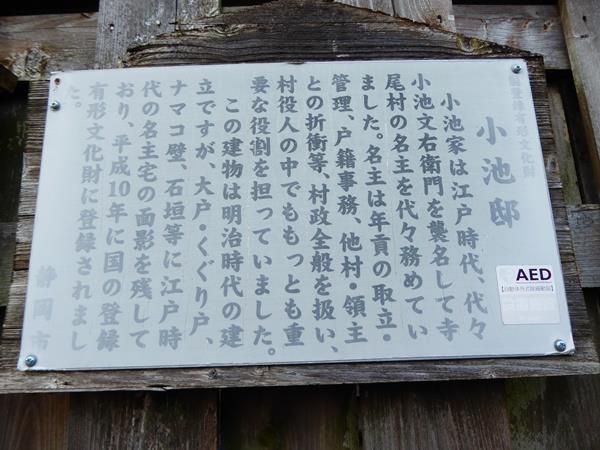 国登録有形文化財
小池邸
小池家は江戸時代、代々
小池文右衛門を襲名して寺
尾村の名主を代々務めてい
ました。名主は年貢の取立・
管理、戸籍事務、他村・領主
との折衝等、村政全般を扱い、
村役人の中でももっとも重
要な役割を担っていました。
この建物は明治時代の建
立ですが、大戸・くぐり戸、
ナマコ壁、石垣等に江戸時
代の名主宅の面影を残して
おり、平成10年に国の登録
有形文化財に登録されまし
た。
静岡市
AED
【自動体外式除細動器】